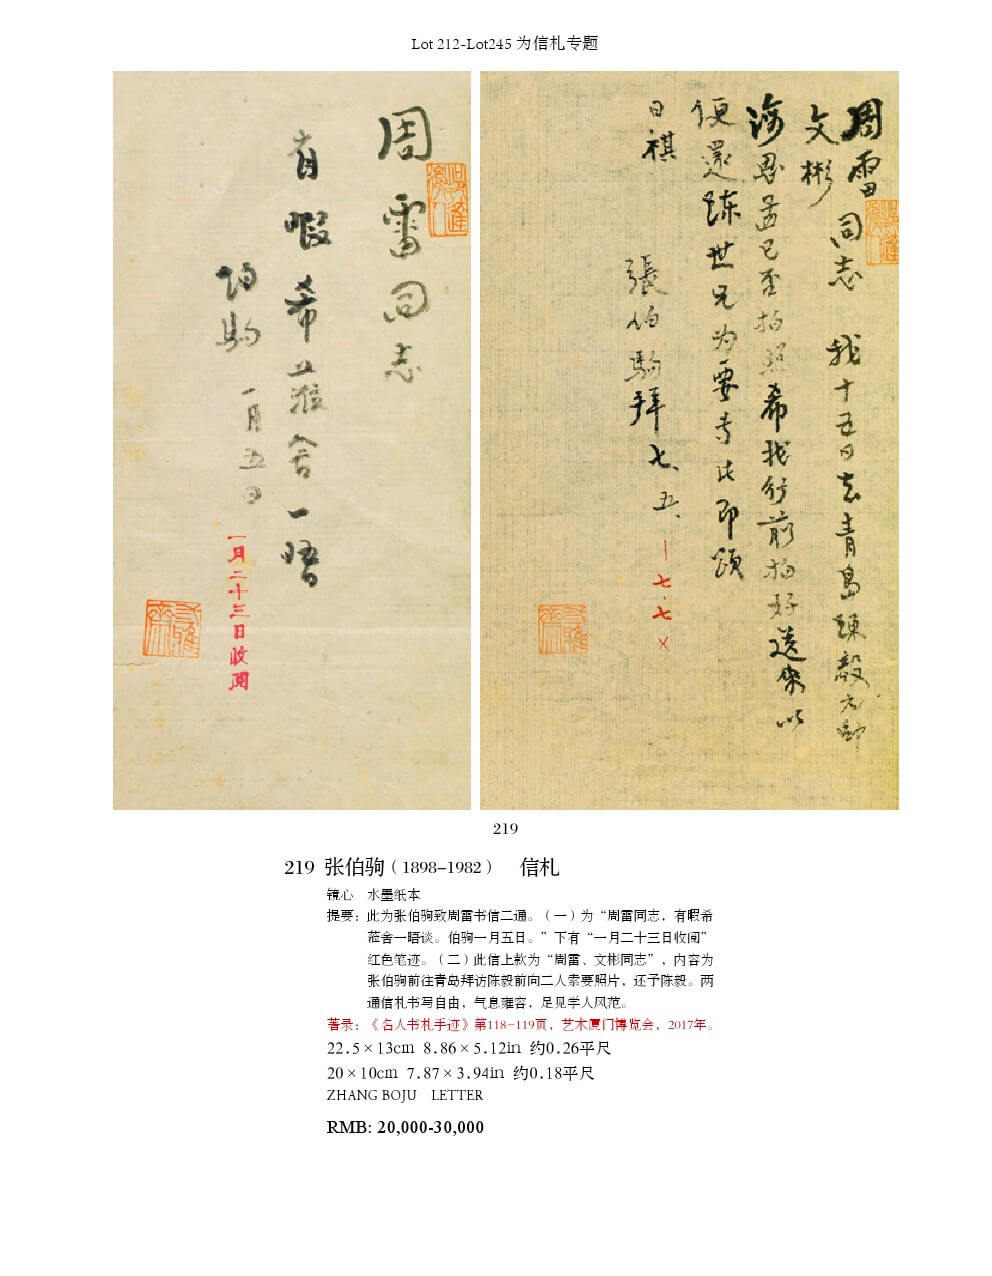 Lot 212-Lot245 为信札专题
周雷同志
有暇希蒞舍一晤
伯駒 一月五日
一月二十三日收阅
周雷
文彬
同志 我十五日去青島 陳毅元帥
已否拍照希我行前拍好送來以
便還陳世兄为要专此即頌
日祺 張伯駒拜 七、五、
219
219 张伯驹（1898-1982） 信札
镜心 水墨纸本
提要：此为张伯驹致周雷书信二通。（一）为“周雷同志，有暇希
莅舍一晤谈。伯驹一月五日。”下有“一月二十三日收阅”
红色笔迹。（二）此信上款为“周雷、文彬同志”，内容为
张伯驹前往青岛拜访陈毅前向二人索要照片，还予陈毅。两
通信札书写自由，气息雍容，足见学人风范。
著录：《名人书札手迹》第118-119页，艺术厦门博览会，2017年。
22.5×13cm 8.86×5.12in 约0.26平尺
20×10cm 7.87×3.94in 约0.18平尺
ZHANG BOJU LETTER
RMB: 20,000-30,000